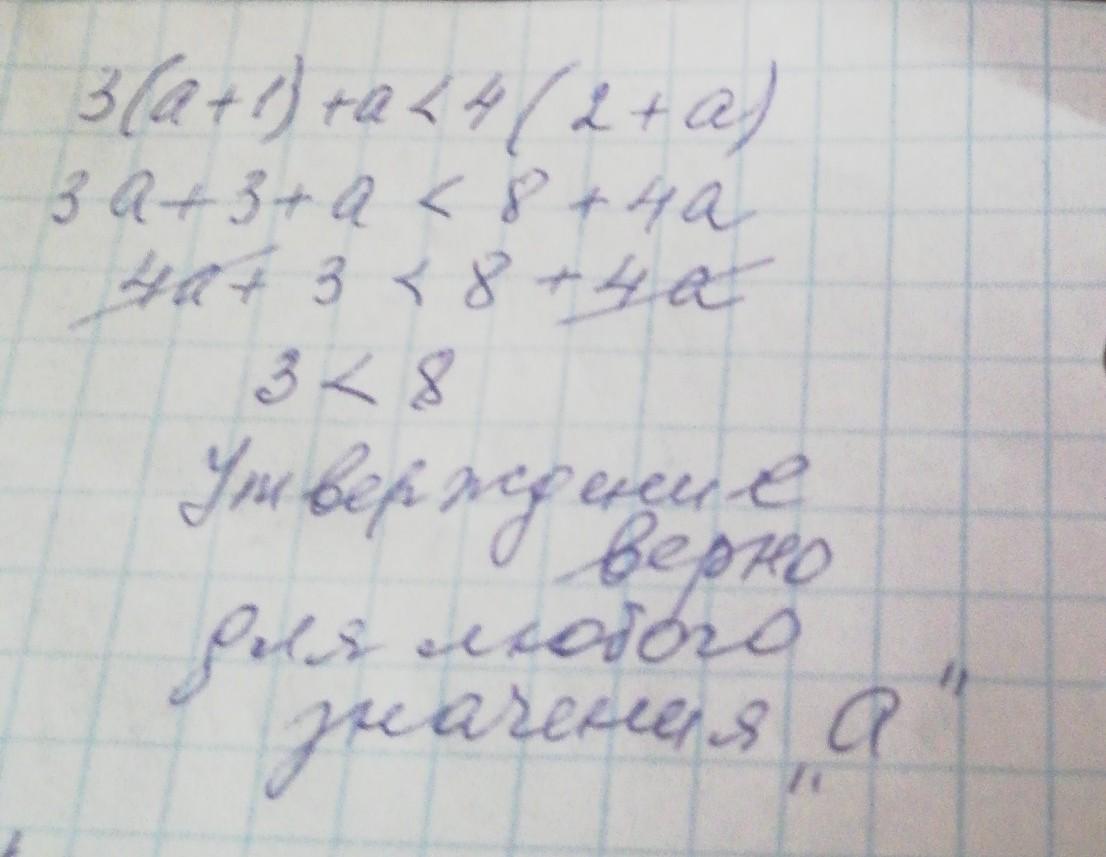 3(a+1)+a<4(2+a)
3a+3+a < 8+4a
4a+3 < 8+4a
3 < 8
Утверждение
верно
для любого
значения „a"